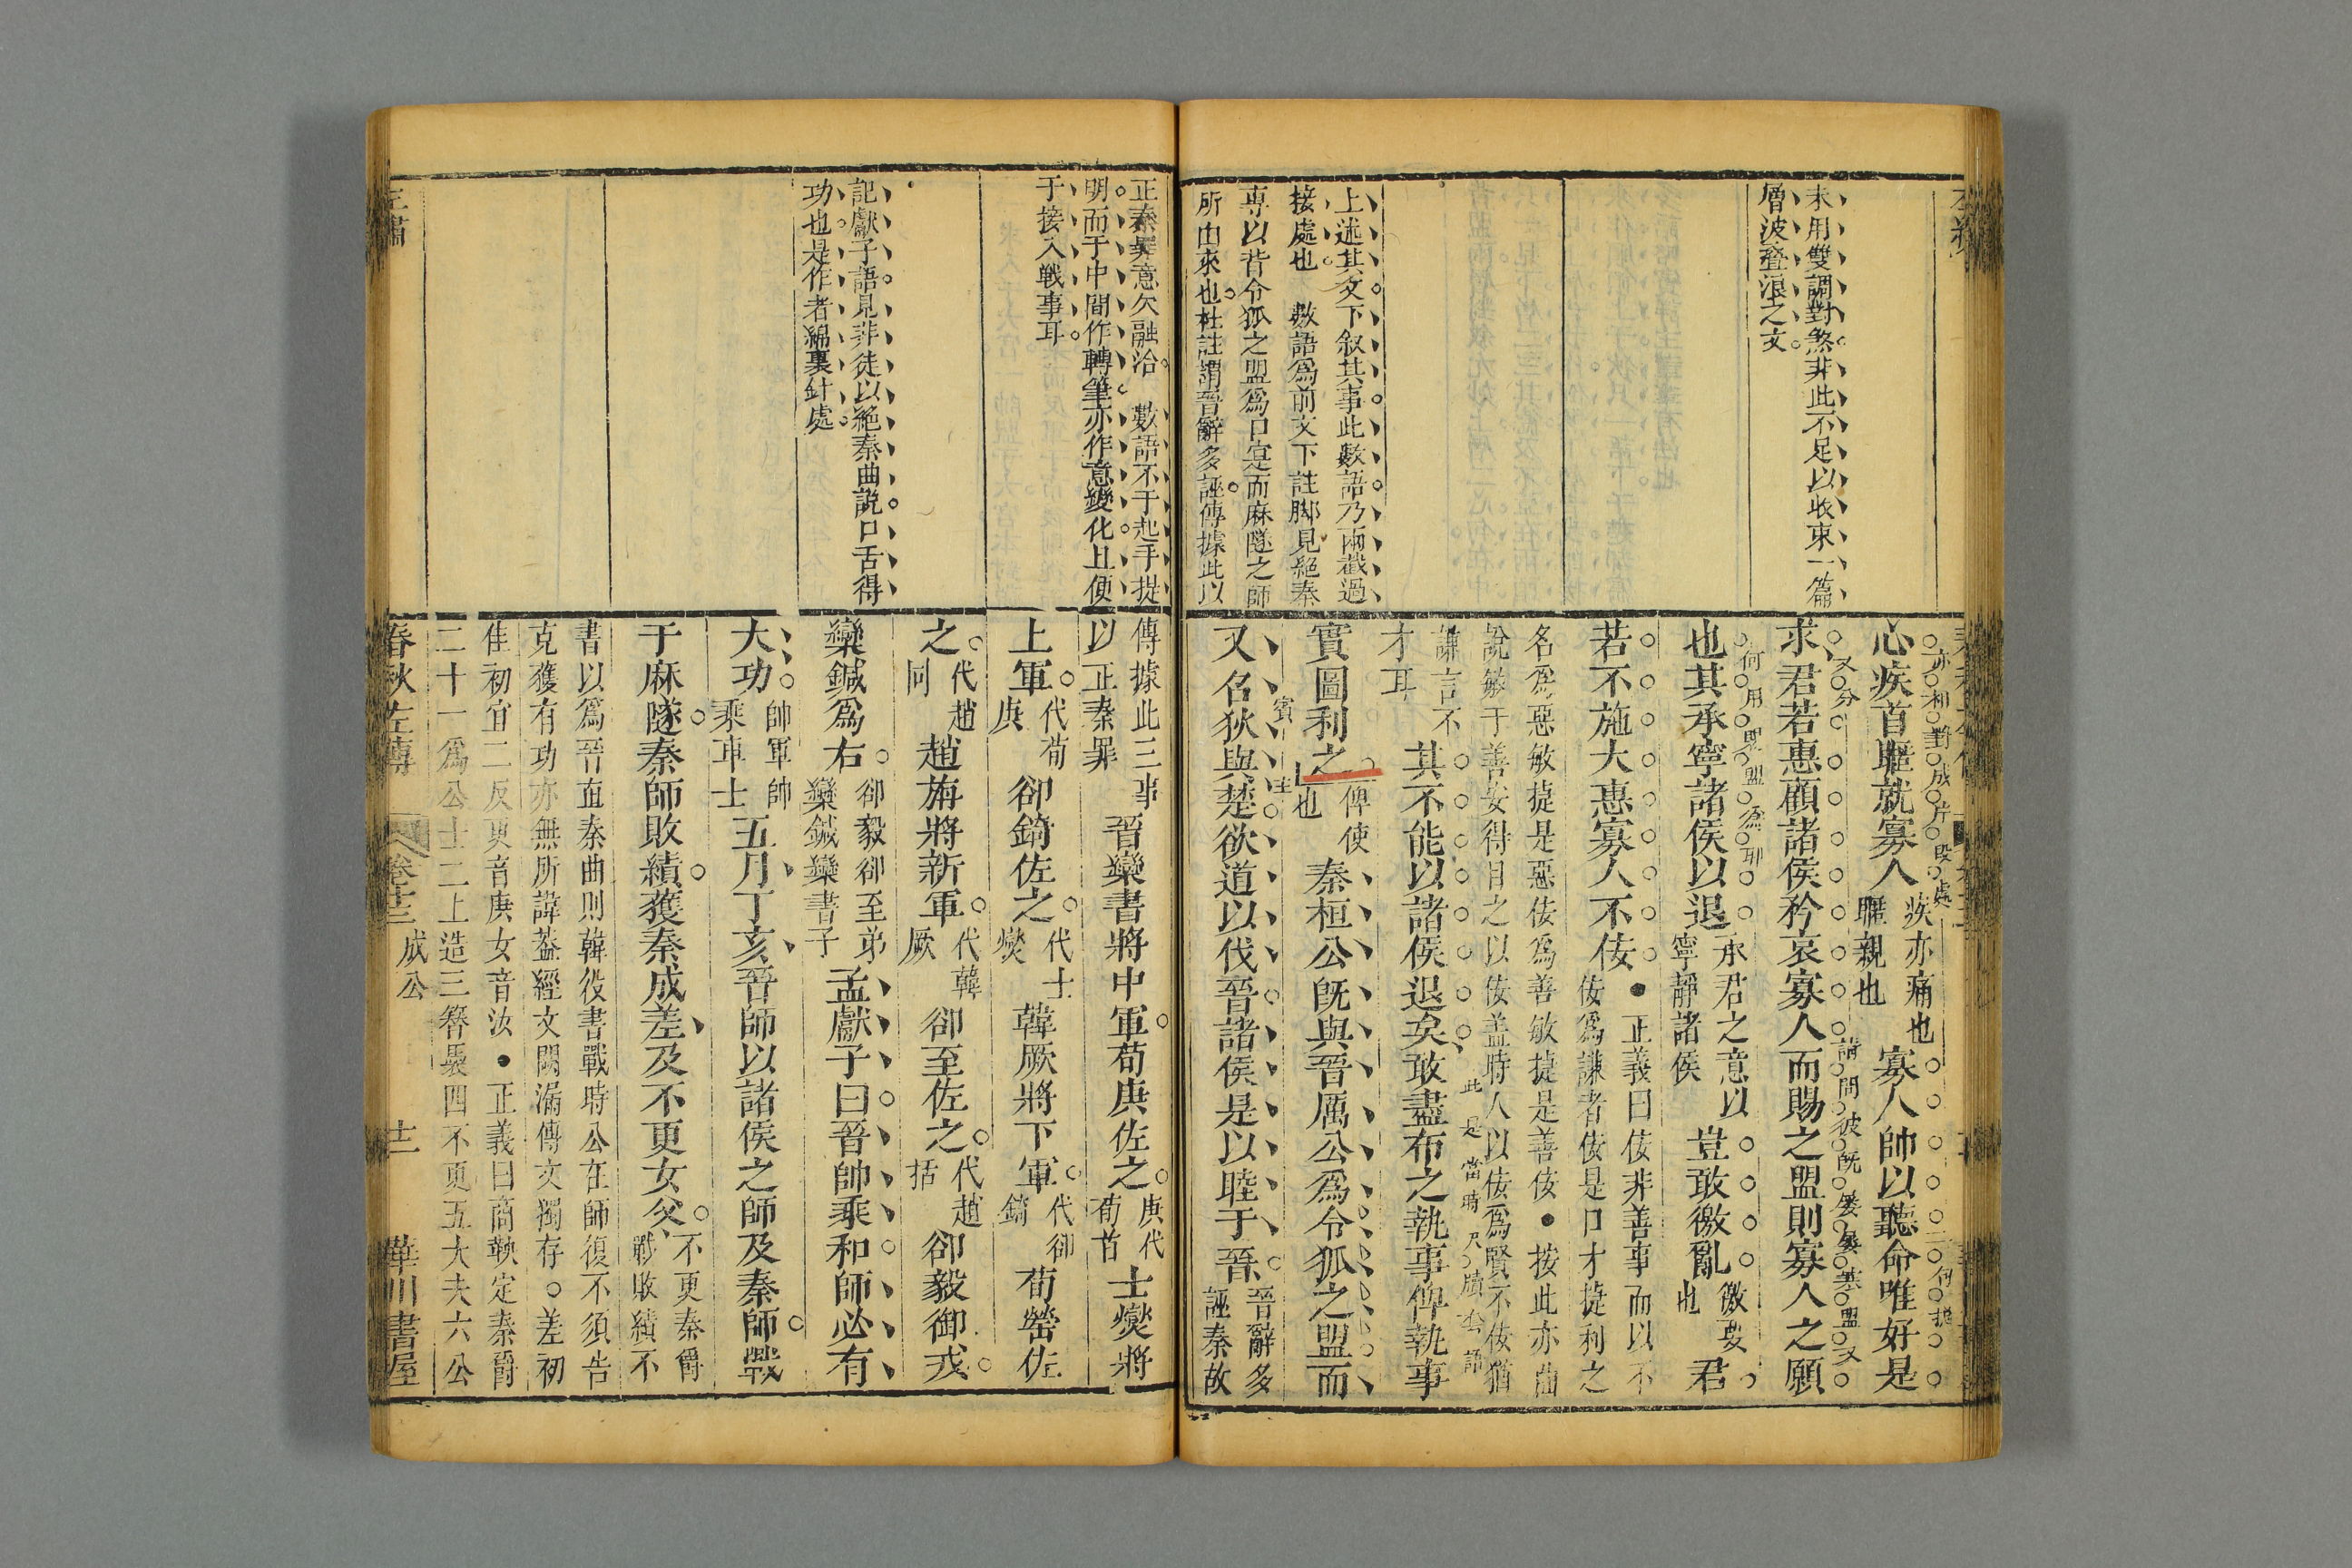 末用雙調對煞非此不足以收束一篇
層波疊浪之文
上述其文下叙其事此數語乃兩截過
接處也　數語爲前文下註脚見絕秦
專以背令狐之盟爲口寔而麻隧之師
所由來也杜註謂晉辭多誣傳據此以
心疾首暱就寡人
疾亦痛也
暱親也
寡人帥以聽命唯好是
求君若惠顧諸侯矜哀寡人而賜之盟則寡人之願
也其承寧諸侯以退
承君之意以
寧靜諸侯
豈敢徼亂
徼要
也
君
若不施大惠寡人不佞
正義曰佞非善事而以不
佞爲謙者佞是口才捷利之
名爲惡敏捷是惡佞爲善敏捷是善佞●按此亦曲
說敏于善安得目之以佞盖時人以佞爲賢不佞猶
謙言不
才耳
其不能以諸侯退矣敢盡布之執事俾執事
實圖利之
俾使
也
秦桓公旣與晉厲公爲令狐之盟而
又名狄與楚欲道以伐晉諸侯是以睦于晉
晉辭多
誣秦故
正秦罪意欠融洽　數語不于起手提
明而于中間作轉筆亦作意變化且便
于接入戰事耳
記獻子語見非徒以絕秦曲說口舌得
功也是作者綿裏針處
傳據此三事
以正秦罪
晉欒書將中軍荀庚佐之
庚代
荀首
士燮將
上軍
代荀
庚
郤錡佐之
代士
燮
韓厥將下軍
代郤
錡
荀罃佐
之
代趙
同
趙旃將新軍
代韓
厥
郤至佐之
代趙
括
郤毅御戎
欒鍼爲右
郤毅郤至弟
欒鍼欒書子
孟獻子曰晉帥乘和師必有
大功
帥軍帥
乘車士
五月丁亥晉師以諸侯之師及秦師戰
于麻隧秦師敗績獲秦成差及不更女父
不更秦爵
戰敗績不
書以爲晉直秦曲則韓役書戰時公在師復不須告
克獲有功亦無所諱葢經文闕漏傳文獨存○差初
佳初宜二反更音庚女音汝●正義曰商鞅定秦爵
二十一爲公士二上造三簪裊四不更五大夫六公
春秋左傳　卷十三　成公　十二　華川書屋